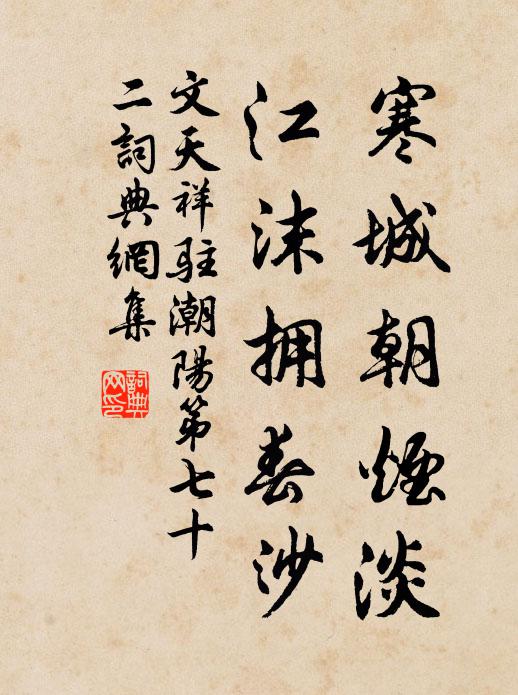 寒城朝煙淡
江沫拥春沙
文天祥駐潮陽第七十
二詞典網集
詞典
网印